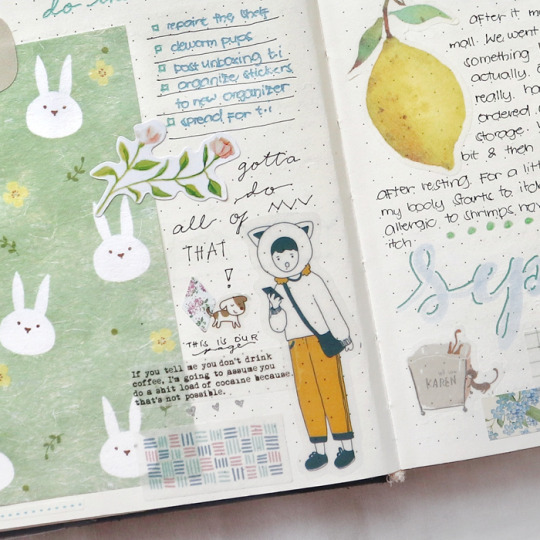 do
repaint the shelf
deworm pups
post unboxing t.i
organize stickers
to new organizer
spread for t.i
gotta
do
all of
THAT
!
THIS IS OUR
page
If you tell me you don't drink
coffee, I'm going to assume you
do a shit load of cocaine because
that's not possible.
after it
mall. We went
something
actually.
really.
ordered
storage.
bit & then
after resting. For a little
my body starts to itch
allergic to shrimps, now
itch.
Sep
KADEN